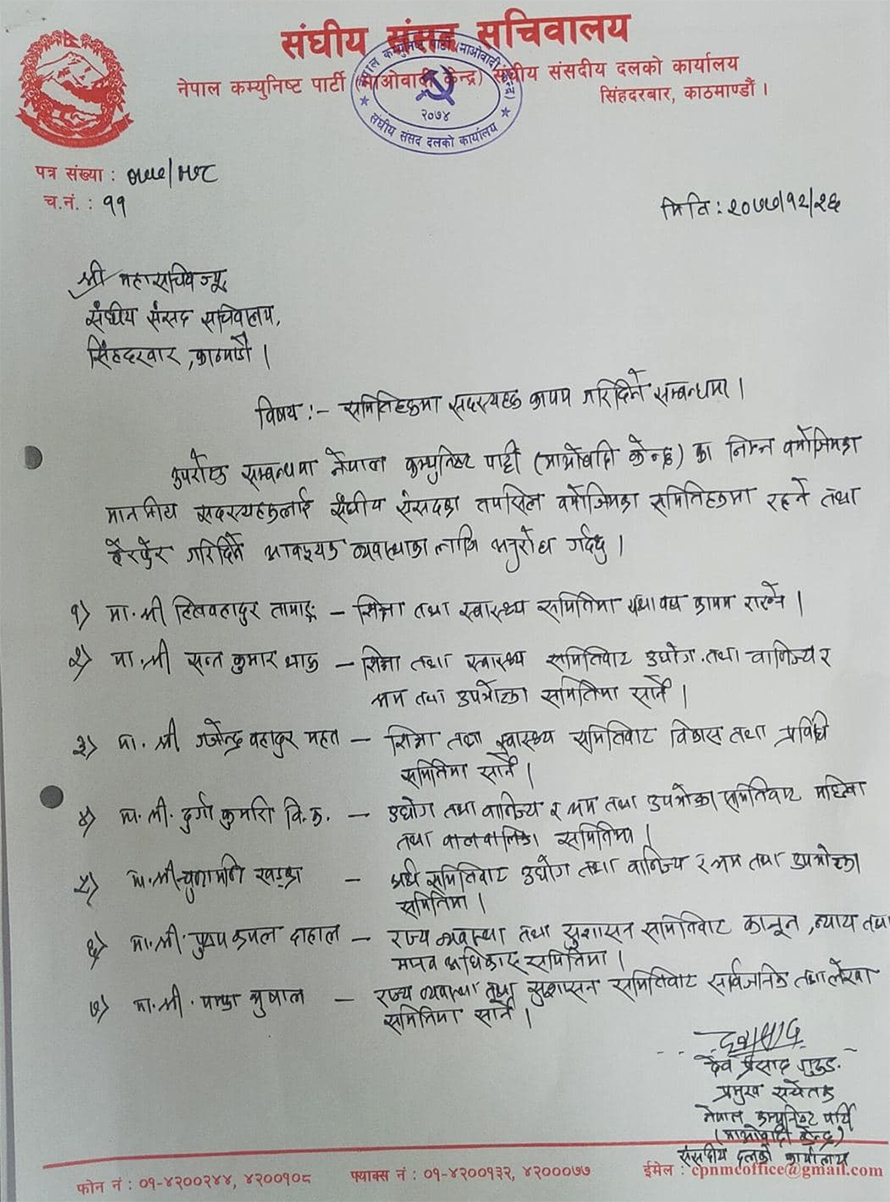 संघीय संसद सचिवालय
नेपाल कम्युनिष्ट पार्टी (माओवादी केन्द्र) संघीय संसदीय दलको कार्यालय
सिंहदरबार, काठमाण्डौं ।
नेपाल कम्युनिष्ट पार्टी (माओवादी केन्द्र)
२०७४
संघीय संसद दलको कार्यालय
पत्र संख्या :
च.नं. : ११
मिति : २०७७/१२/२६
श्री महासचिवज्यू
संघीय संसद सचिवालय,
सिंहदरवार, काठमाडौं ।
विषय :- समितिहरुमा सदस्यहरु कायम गरिदिने सम्बन्धमा ।
उपरोक्त सम्बन्धमा नेपाल कम्युनिष्ट पार्टी (माओवादी केन्द्र) का निम्न वमोजिमका
माननीय सदस्यहरुलाई संघीय संसदका तपसिल वमोजिमका समितिहरुमा रहने तथा
हेरफेर गरिदिने आवश्यक व्यवस्थाका लागि अनुरोध गर्दछु ।
१) मा. श्री हितवहादुर तामाङ - शिक्षा तथा स्वास्थ्य समितिमा यथावत कायम राख्ने ।
२) मा. श्री सन्त कुमार थारु - शिक्षा तथा स्वास्थ्य समितिवाट उद्योग तथा वाणिज्य र
श्रम तथा उपभोक्ता समितिमा सार्ने ।
३) मा. श्री गजेन्द्र वहादुर महत - शिक्षा तथा स्वास्थ्य समितिवाट विकास तथा प्रविधि
समितिमा सार्ने ।
४) मा. श्री. दुर्गा कुमारी वि.क. - उद्योग तथा वाणिज्य र श्रम तथा उपभोक्ता समितिवाट महिला
तथा वालवालिका समितिमा ।
५) मा. श्री चुडामणि खड्का - अर्थ समितिवाट उद्योग तथा वाणिज्य र श्रम तथा उपभोक्ता
समितिमा ।
६) मा. श्री. पुष्प कमल दाहाल - राज्य व्यवस्था तथा सुशासन समितिवाट कानून, न्याय तथा
मानव अधिकार समितिमा ।
७) मा. श्री. पम्फा भुसाल - राज्य व्यवस्था तथा सुशासन समितिवाट सार्वजनिक तथा लेखा
समितिमा सार्ने ।
देव प्रसाद गुरुङ
प्रमुख सचेतक
नेपाल कम्युनिष्ट पार्टी
(माओवादी केन्द्र)
संसदीय दलको कार्यालय
फोन नं : ०१-४२००२४४, ४२००१०८ फ्याक्स नं : ०१-४२००१३२, ४२०००७७ ईमेल : cpnmcoffice@gmail.com